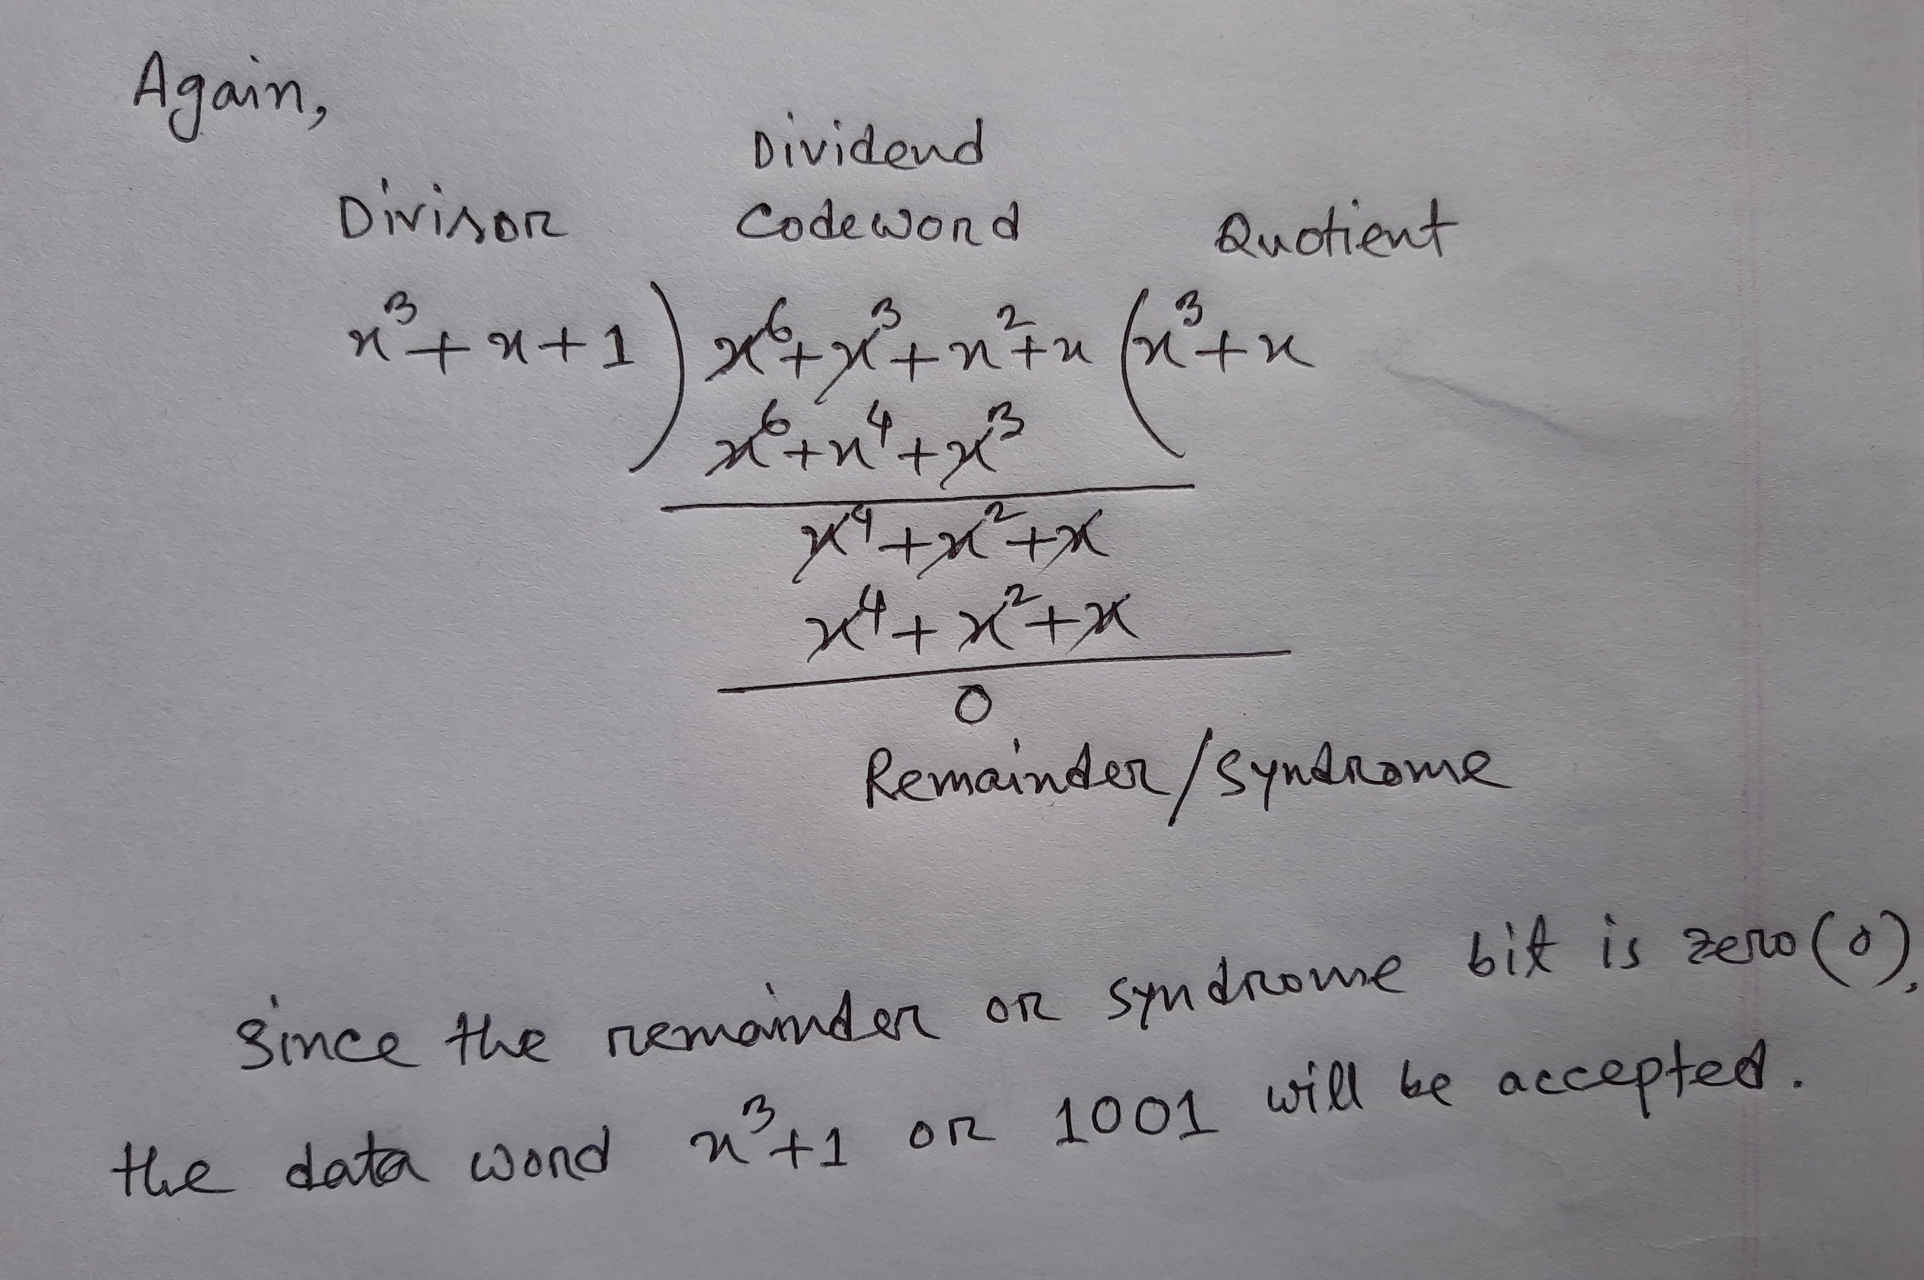 Again,
Dividend
Divisor Codeword Quotient
x³+x+1 ) x⁶+x³+x²+x ( x³+x
x⁶+x⁴+x³
x⁴+x²+x
x⁴+x²+x
0
Remainder/Syndrome
Since the remainder or syndrome bit is zero(0),
the data word x³+1 or 1001 will be accepted.